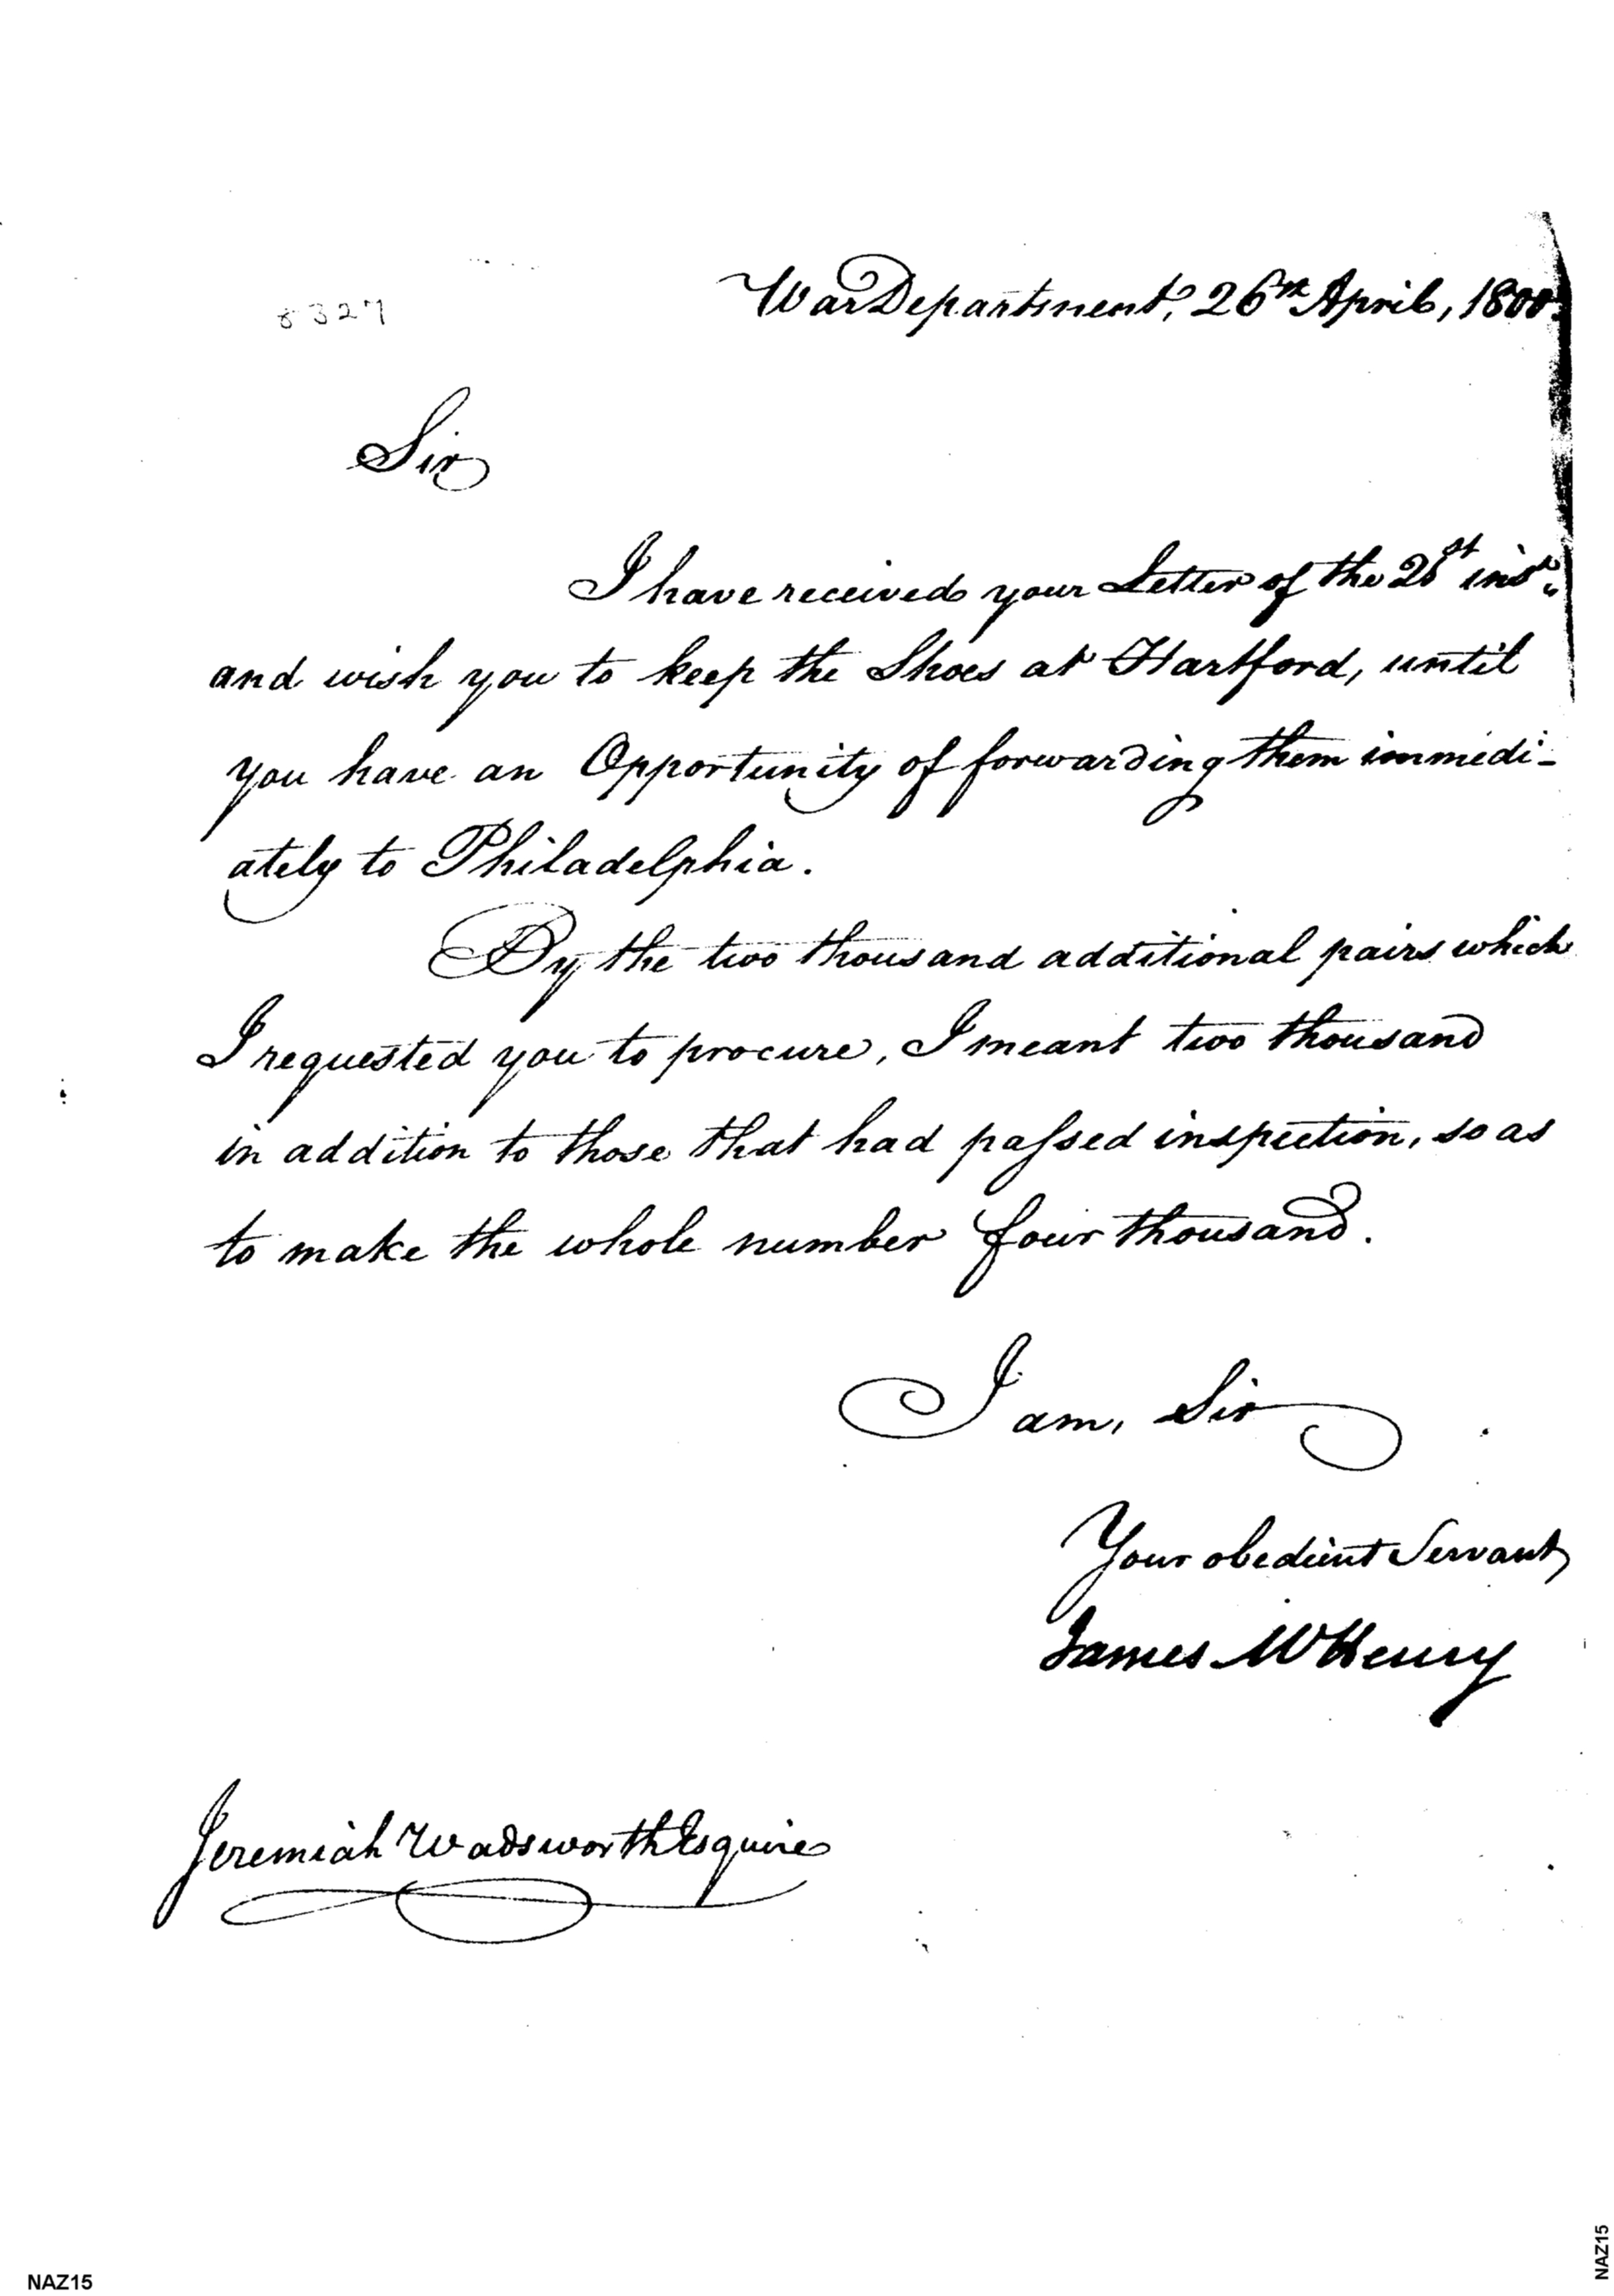 8327
War Department, 26th April, 1800.
Sir
I have received your Letter of the st inst.
and wish you to keep the Shoes at Hartford, until
you have an Opportunity of forwarding them immedi-
ately to Philadelphia.
By the two thousand additional pairs which
I requested you to procure, I meant two thousand
in addition to those that had paſsed inspection, so as
to make the whole number four thousand.
I am, Sir
Your obedient Servant
James McHenry
Jeremiah Wadsworth Esquire
NAZ15
NAZ15